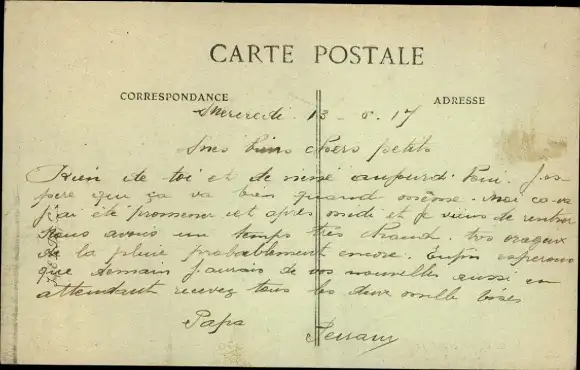 CARTE POSTALE
CORRESPONDANCE
ADRESSE
Mercredi 13 - 6 . 17
Mes biens chers petits
Rien de toi et de aujourd'hui. J'es
père que ça va bien quand même. Moi ça va
j'ai été promener cet après midi et je viens de rentrer
Nous avons un temps très chaud. très orageux
de la pluie probablement encore. Enfin esperons
que demain j'aurais de vos nouvelles aussi en
attendant recevez tous les deux mille bises
Papa